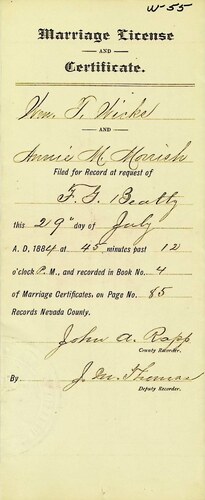 W-55
Marriage License
AND
Certificate.
Wm. T. Wicks
AND
Annie M. Morrish
Filed for Record at request of
F. G. Beatty
this 29" day of July
A. D. 1884 at 45 minutes past 12
o'clock P. M., and recorded in Book No. 4
of Marriage Certificates, on Page No. 85
Records Nevada County.
John A. Rapp
County Recorder.
By J. M. Thomas
Deputy Recorder.